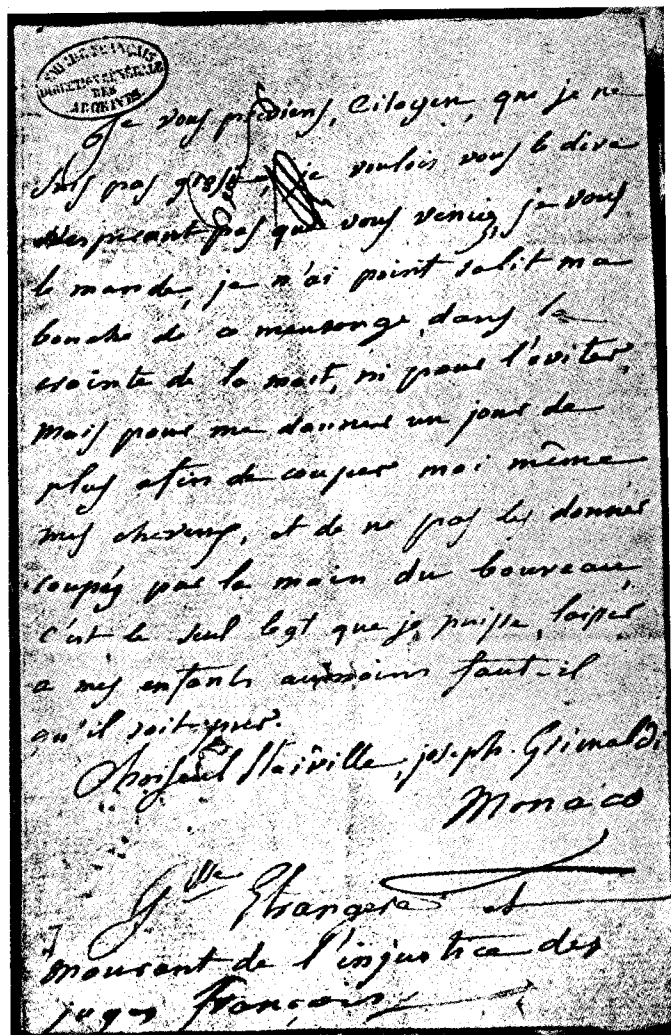 EMPIRE FRANÇAIS
DIRECTION GÉNÉRALE
DES
ARCHIVES
Je vous préviens, Citoyen, que je ne
suis pas grosse, je voulois vous le dire
n'esperant pas que vous veniez, je vous
le mande, je n'ai point salit ma
bouche de ce mensonge, dans la
crainte de la mort, ni pour l'eviter,
mais pour me donner un jour de
plus afin de couper moi même
mes cheveux, et de ne pas les donner
coupés par la main du boureau,
c'est le seul legt que je puisse laisser
a mes enfants aumoins faut-il
qu'il soit pur.
Choiseul Stainville, joseph. Grimaldi
Monaco
Etrangere et
mourant de l'injustice des
juges françois